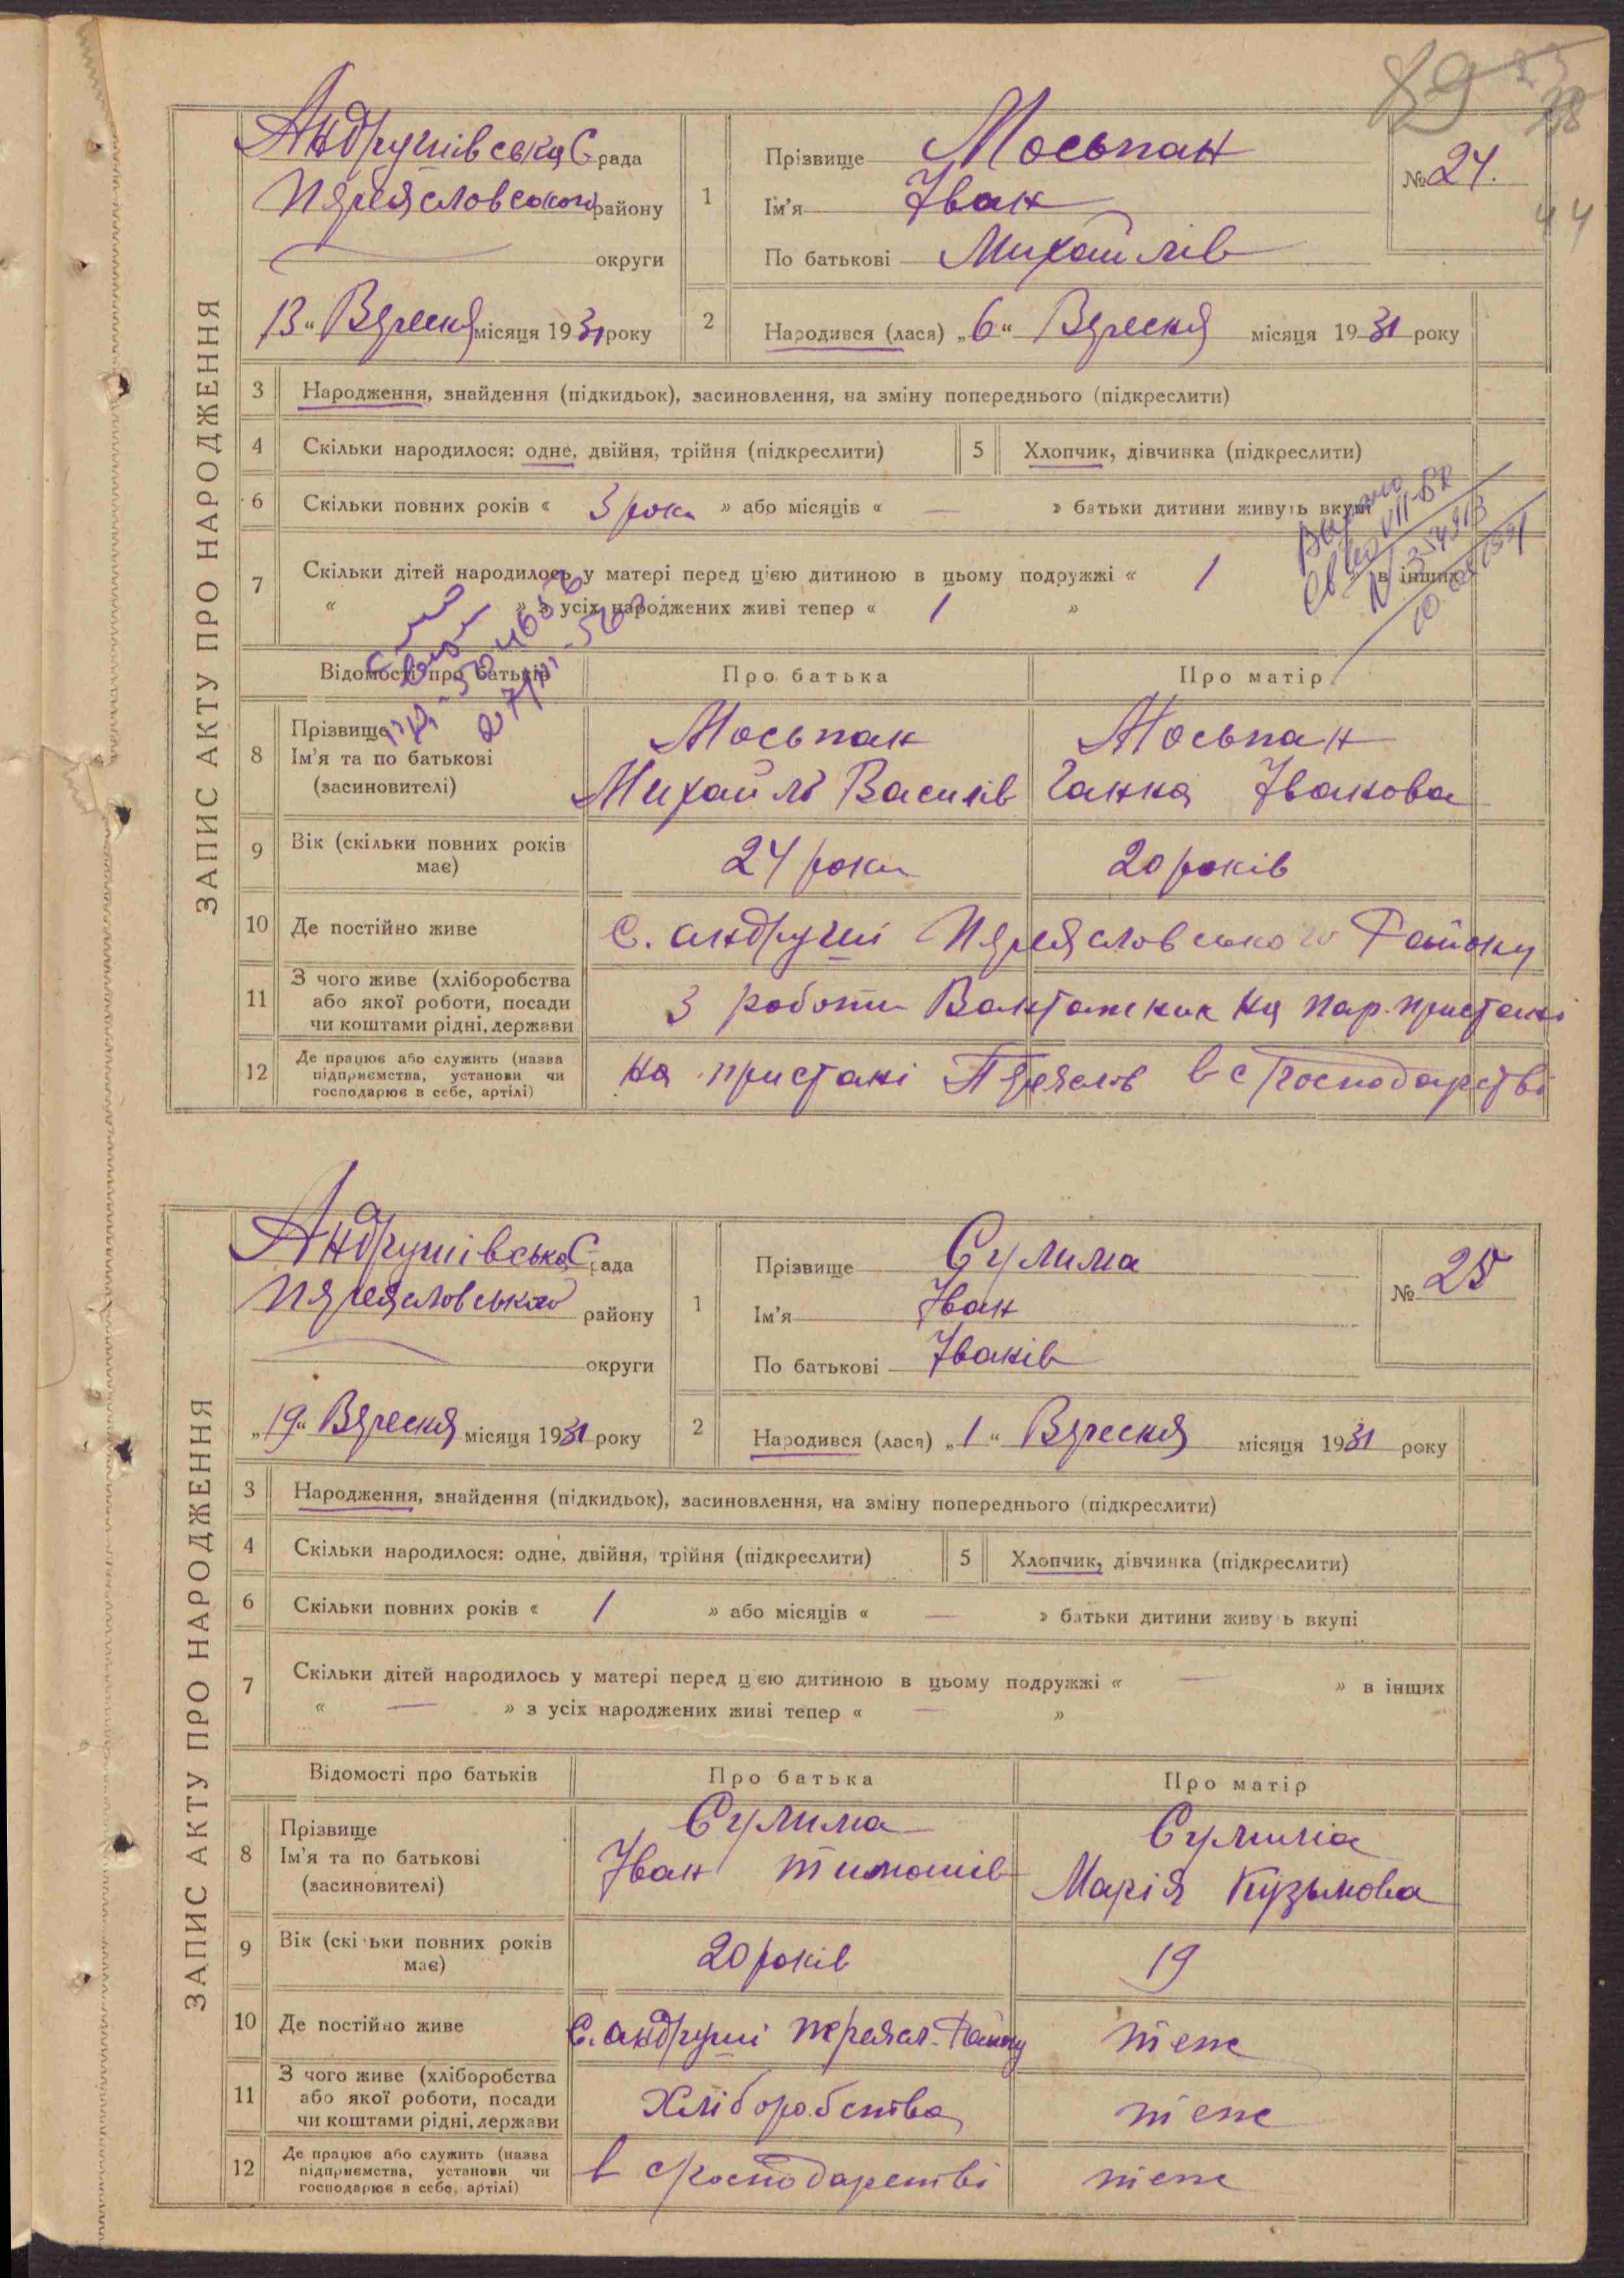 89
44
ЗАПИС АКТУ ПРО НАРОДЖЕННЯ
Андрушівська С рада
Переясловського району
округи
13 “ Вересня місяця 1931 року
1
Прізвище Москпан
Ім’я Іван
По батькові Михайлів
№ 24.
2
Народився (лася) „ 6 “ Вересня місяця 1931 року
3 Народження, знайдення (підкидьок), засиновлення, на зміну попереднього (підкреслити)
4 Скільки народилося: одне, двійня, трійня (підкреслити)
5 Хлопчик, дівчинка (підкреслити)
6 Скільки повних років « 3 роки » або місяців « — » батьки дитини живуть вкупі
7 Скільки дітей народилось у матері перед цією дитиною в цьому подружжі « 1 в інших
« » з усіх народжених живі тепер « 1 »
Відомості про батьків Про батька Про матір
8 Прізвище
Ім’я та по батькові
(засиновителі)
Моськпан
Михайло Василів
Моськпан
Ганна Іванова
9 Вік (скільки повних років
має)
24 роки
20 років
10 Де постійно живе
С. Андруші Переясловського Району
11 З чого живе (хліборобства
або якої роботи, посади
чи коштами рідні, держави
З роботи Вантажник на пар. пристані
12 Де працює або служить (назва
підприємства, установи чи
господарює в себе, артілі)
на пристані Переяслов в с господарстві
ЗАПИС АКТУ ПРО НАРОДЖЕННЯ
Андрушівська С рада
Переясловського району
округи
„ 19 “ Вересня місяця 1931 року
1
Прізвище Сулима
Ім’я Іван
По батькові Іванів
№ 25
2
Народився (лася) „ 1 “ Вересня місяця 1931 року
3 Народження, знайдення (підкидьок), засиновлення, на зміну попереднього (підкреслити)
4 Скільки народилося: одне, двійня, трійня (підкреслити)
5 Хлопчик, дівчинка (підкреслити)
6 Скільки повних років « 1 » або місяців « — » батьки дитини живу ь вкупі
7 Скільки дітей народилось у матері перед ц єю дитиною в цьому подружжі « — » в інших
« — » з усіх народжених живі тепер « — »
Відомості про батьків Про батька Про матір
8 Прізвище
Ім’я та по батькові
(засиновителі)
Сулима
Іван Тимошів
Сулима
Марія Кузьмова
9 Вік (скі ьки повних років
має)
20 років
19
10 Де постійно живе
С. Андруші Переясл. Району
теж
11 З чого живе (хліборобства
або якої роботи, посади
чи коштами рідні, держави
Хліборобства
теж
12 Де працює або служить (назва
підприємства, установи чи
господарює в себе, артілі)
в с господарстві
теж